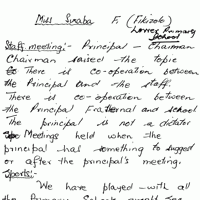 Miss Siraba F. (Fikizolo)
Lower Primary School
Staff meeting:- Principal - Chairman
Chairman raised the topic
There is co-operation between
the Principal and the staff.
There is co-operation between
the Principal Fraternal and school
The principal is not a dictator
Meetings held when the
principal has something to suggest
or after the principal's meeting.
Sports:-
We have played with all
the Primary Schools except